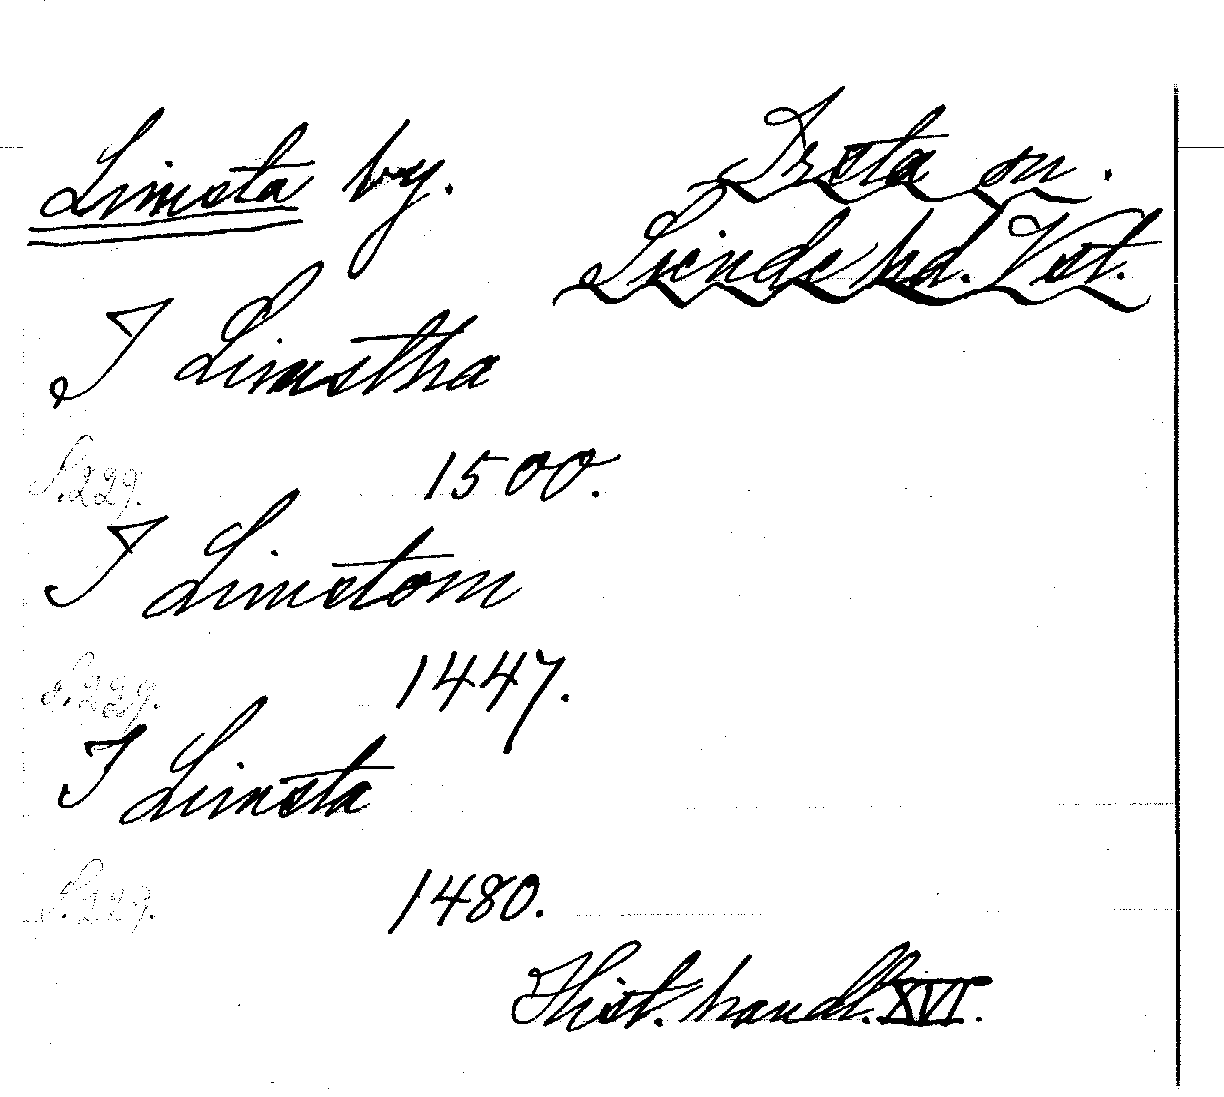 Limsta by.
Irsta sn.
Siende hd. Vst.
I Limstha
S. 229. 1500.
I Limstom
S. 229. 1447.
I Limsta
S. 229. 1480.
Hist. handl. XVI.